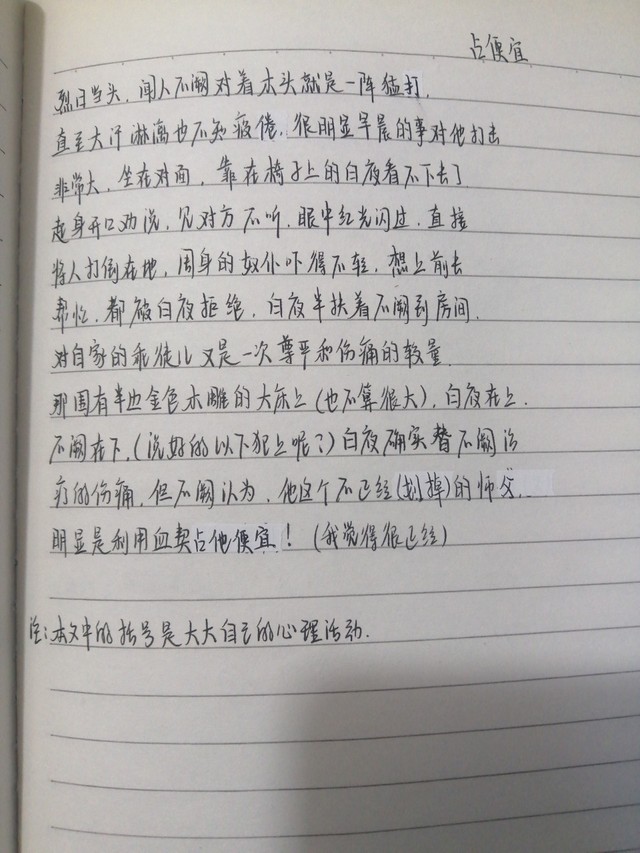 占便宜
烈日当头，闻人不阙对着木头就是一阵猛打，
直至大汗淋漓也不知疲倦，很明显早晨的事对他打击
非常大，坐在对面，靠在椅子上的白夜看不下去了
起身开口劝说，见对方不听，眼中红光闪过，直接
将人打倒在地，周身的奴仆吓得不轻，想上前去
帮忙，都被白夜拒绝，白夜半扶着不阙到房间，
对自家的乖徒儿又是一次尊严和伤痛的较量
那围有半边金色木雕的大床上（也不算很大），白夜在上，
不阙在下，（说好的以下犯上呢？）白夜确实替不阙治
疗的伤痛，但不阙认为，他这个不正经（划掉）的师父，
明显是利用血契占他便宜！（我觉得很正经）
注：本文中的括号是大大自己的心理活动.